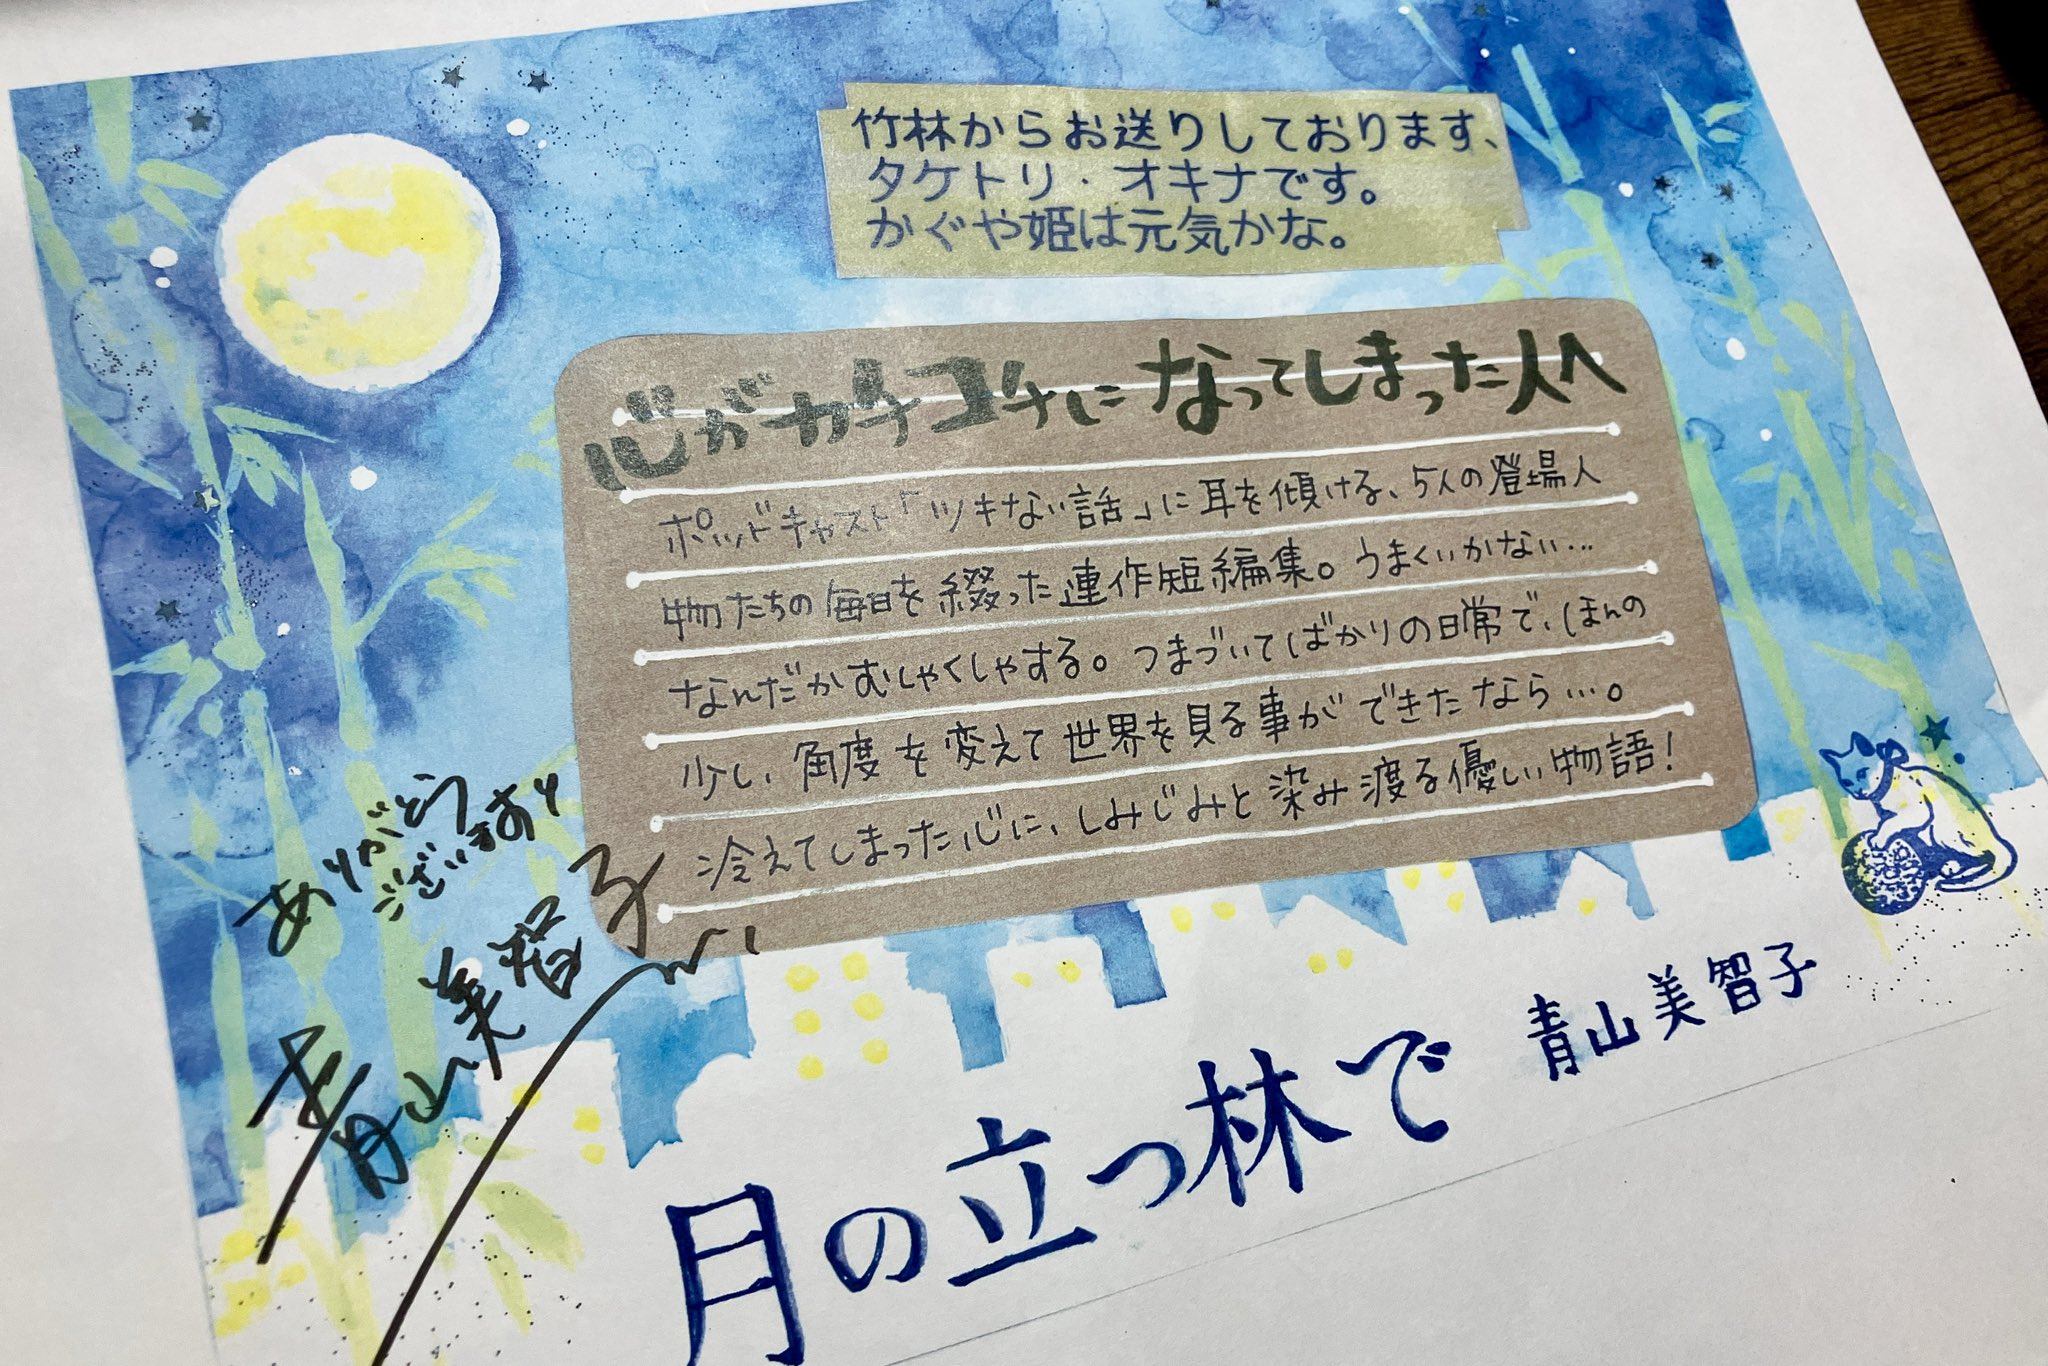 竹林からお送りしております、
タケトリ・オキナです。
かぐや姫は元気かな。
心がカチコチになってしまった人へ
ポッドキャスト「ツキない話」に耳を傾ける、5人の登場人
物たちの毎日を綴った連作短編集。うまくいかない…
なんだかむしゃくしゃする。つまづいてばかりの日常で、ほんの
少し、角度を変えて世界を見る事ができたなら…。
冷えてしまった心に、しみじみと染み渡る優しい物語!
ありがとう
ございます
青山美智子
青山美智子
月の立つ林で